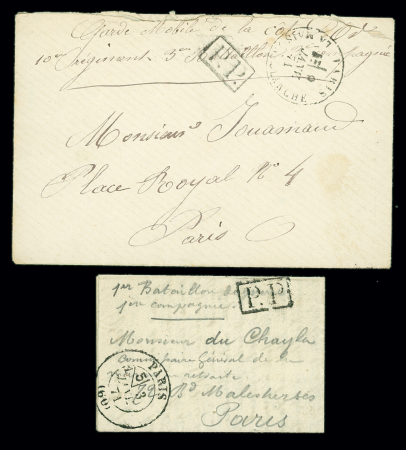 Garde Mobile de la côte d'Or
10e Régiment 3me Bataillon
P.P.
PARIS
Monsieur Jouarnaud
Place Royal No 4
Paris
1er Bataillon
1er compagnie
P.P.
Monsieur du Chayla
Commissaire Général de la
retraite
Bd Malesherbes
Paris
PARIS
(60)